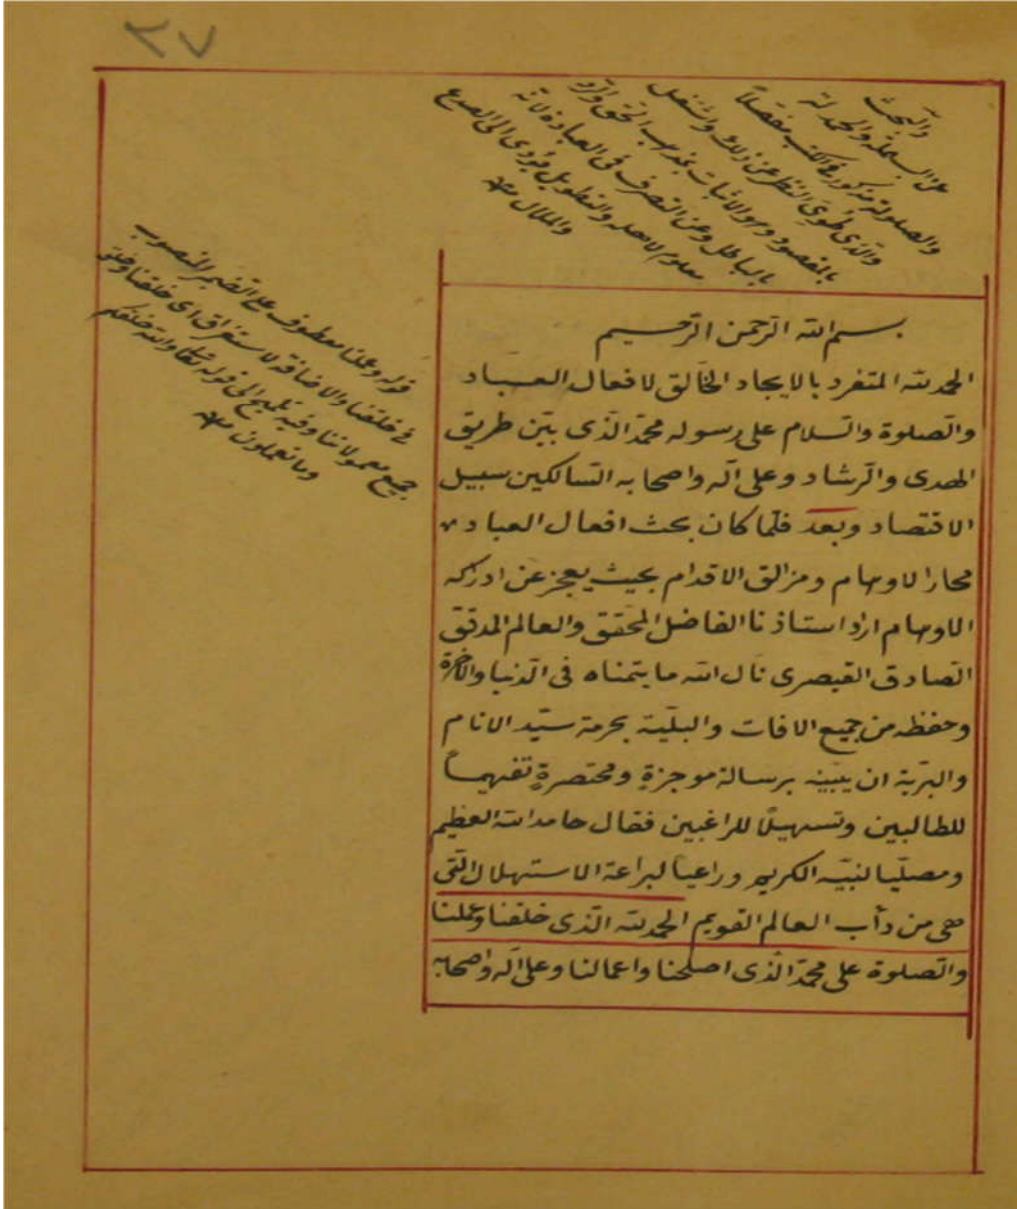 ٢٧
والبحث
عن البسملة والحمدلة
والصلولة مذكورة في الكتب مفصلاً
والذى طوى النظر عن ذلك واشتغل
بالمقصود وهو الاثبات بمذهب الحق والرد
بالباطل وعن التصرف فى العبادة لانه
معلوم لاهله والتطويل يؤدى الى الصداع
والملال منه
قوله وعملنا معطوف على الضمير المنصوب
فى خلقنا والاضافة لاستغراق اى خلقنا وخلق
جميع معمولاتنا وفيه تلميح الى قوله تعالى والله خلقكم
وما تعملون منه
بسم الله الرحمن الرحيم
الحمد لله المتفرد بالايجاد الخالق لافعال العباد
والصلوة والسلام على رسوله محمد الذى بين طريق
الهدى والرشاد وعلى آله واصحابه السالكين سبيل
الاقتصاد وبعد فلما كان بحث افعال العباد من
محار الاوهام ومزالق الاقدام بحيث يعجز عن ادركه
الاوهام اراد استاذنا الفاضل المحقق والعالم المدقق
الصادق القيصرى نال الله ما يتمناه فى الدنيا والآخرة
وحفظه من جميع الافات والبلية بحرمة سيد الانام
والبرية ان يبينه برسالة موجزة ومختصرة تفهيماً
للطالبين وتسهيلاً للراغبين فقال حامد الله العظيم
ومصليا لنبيه الكريم وراعياً لبراعة الاستهلال التى
هى من دأب العالم القويم الحمد لله الذى خلقنا وعملنا
والصلوة على محمد الذى اصلحنا واعمالنا وعلى آله واصحابه